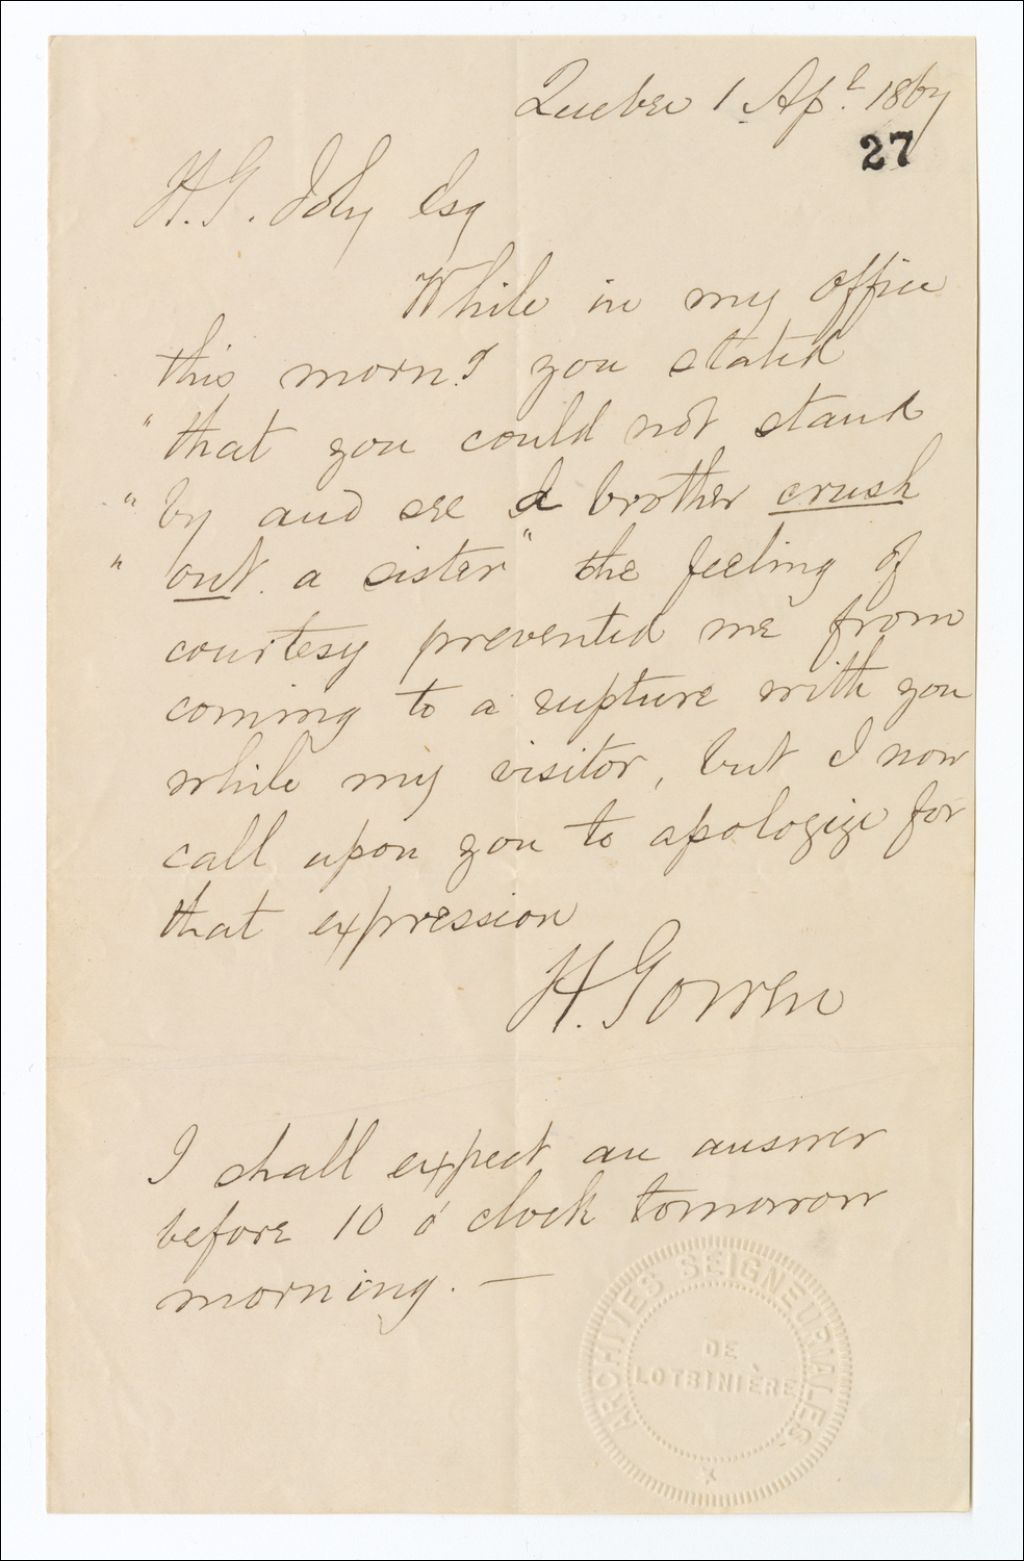 Quebec 1 Apl. 1867
27
H. G. Joly Esq
While in my office
this morng you stated
" that you could not stand
" by and see a brother crush
" out a sister" the feeling of
courtesy prevented me from
coming to a rupture with you
while my visitor, but I now
call upon you to apologize for
that expression
H. Gowen
I shall expect an answer
before 10 o'clock tomorrow
morning. —
ARCHIVES SEIGNEURIALES
DE
LOTBINIÈRE